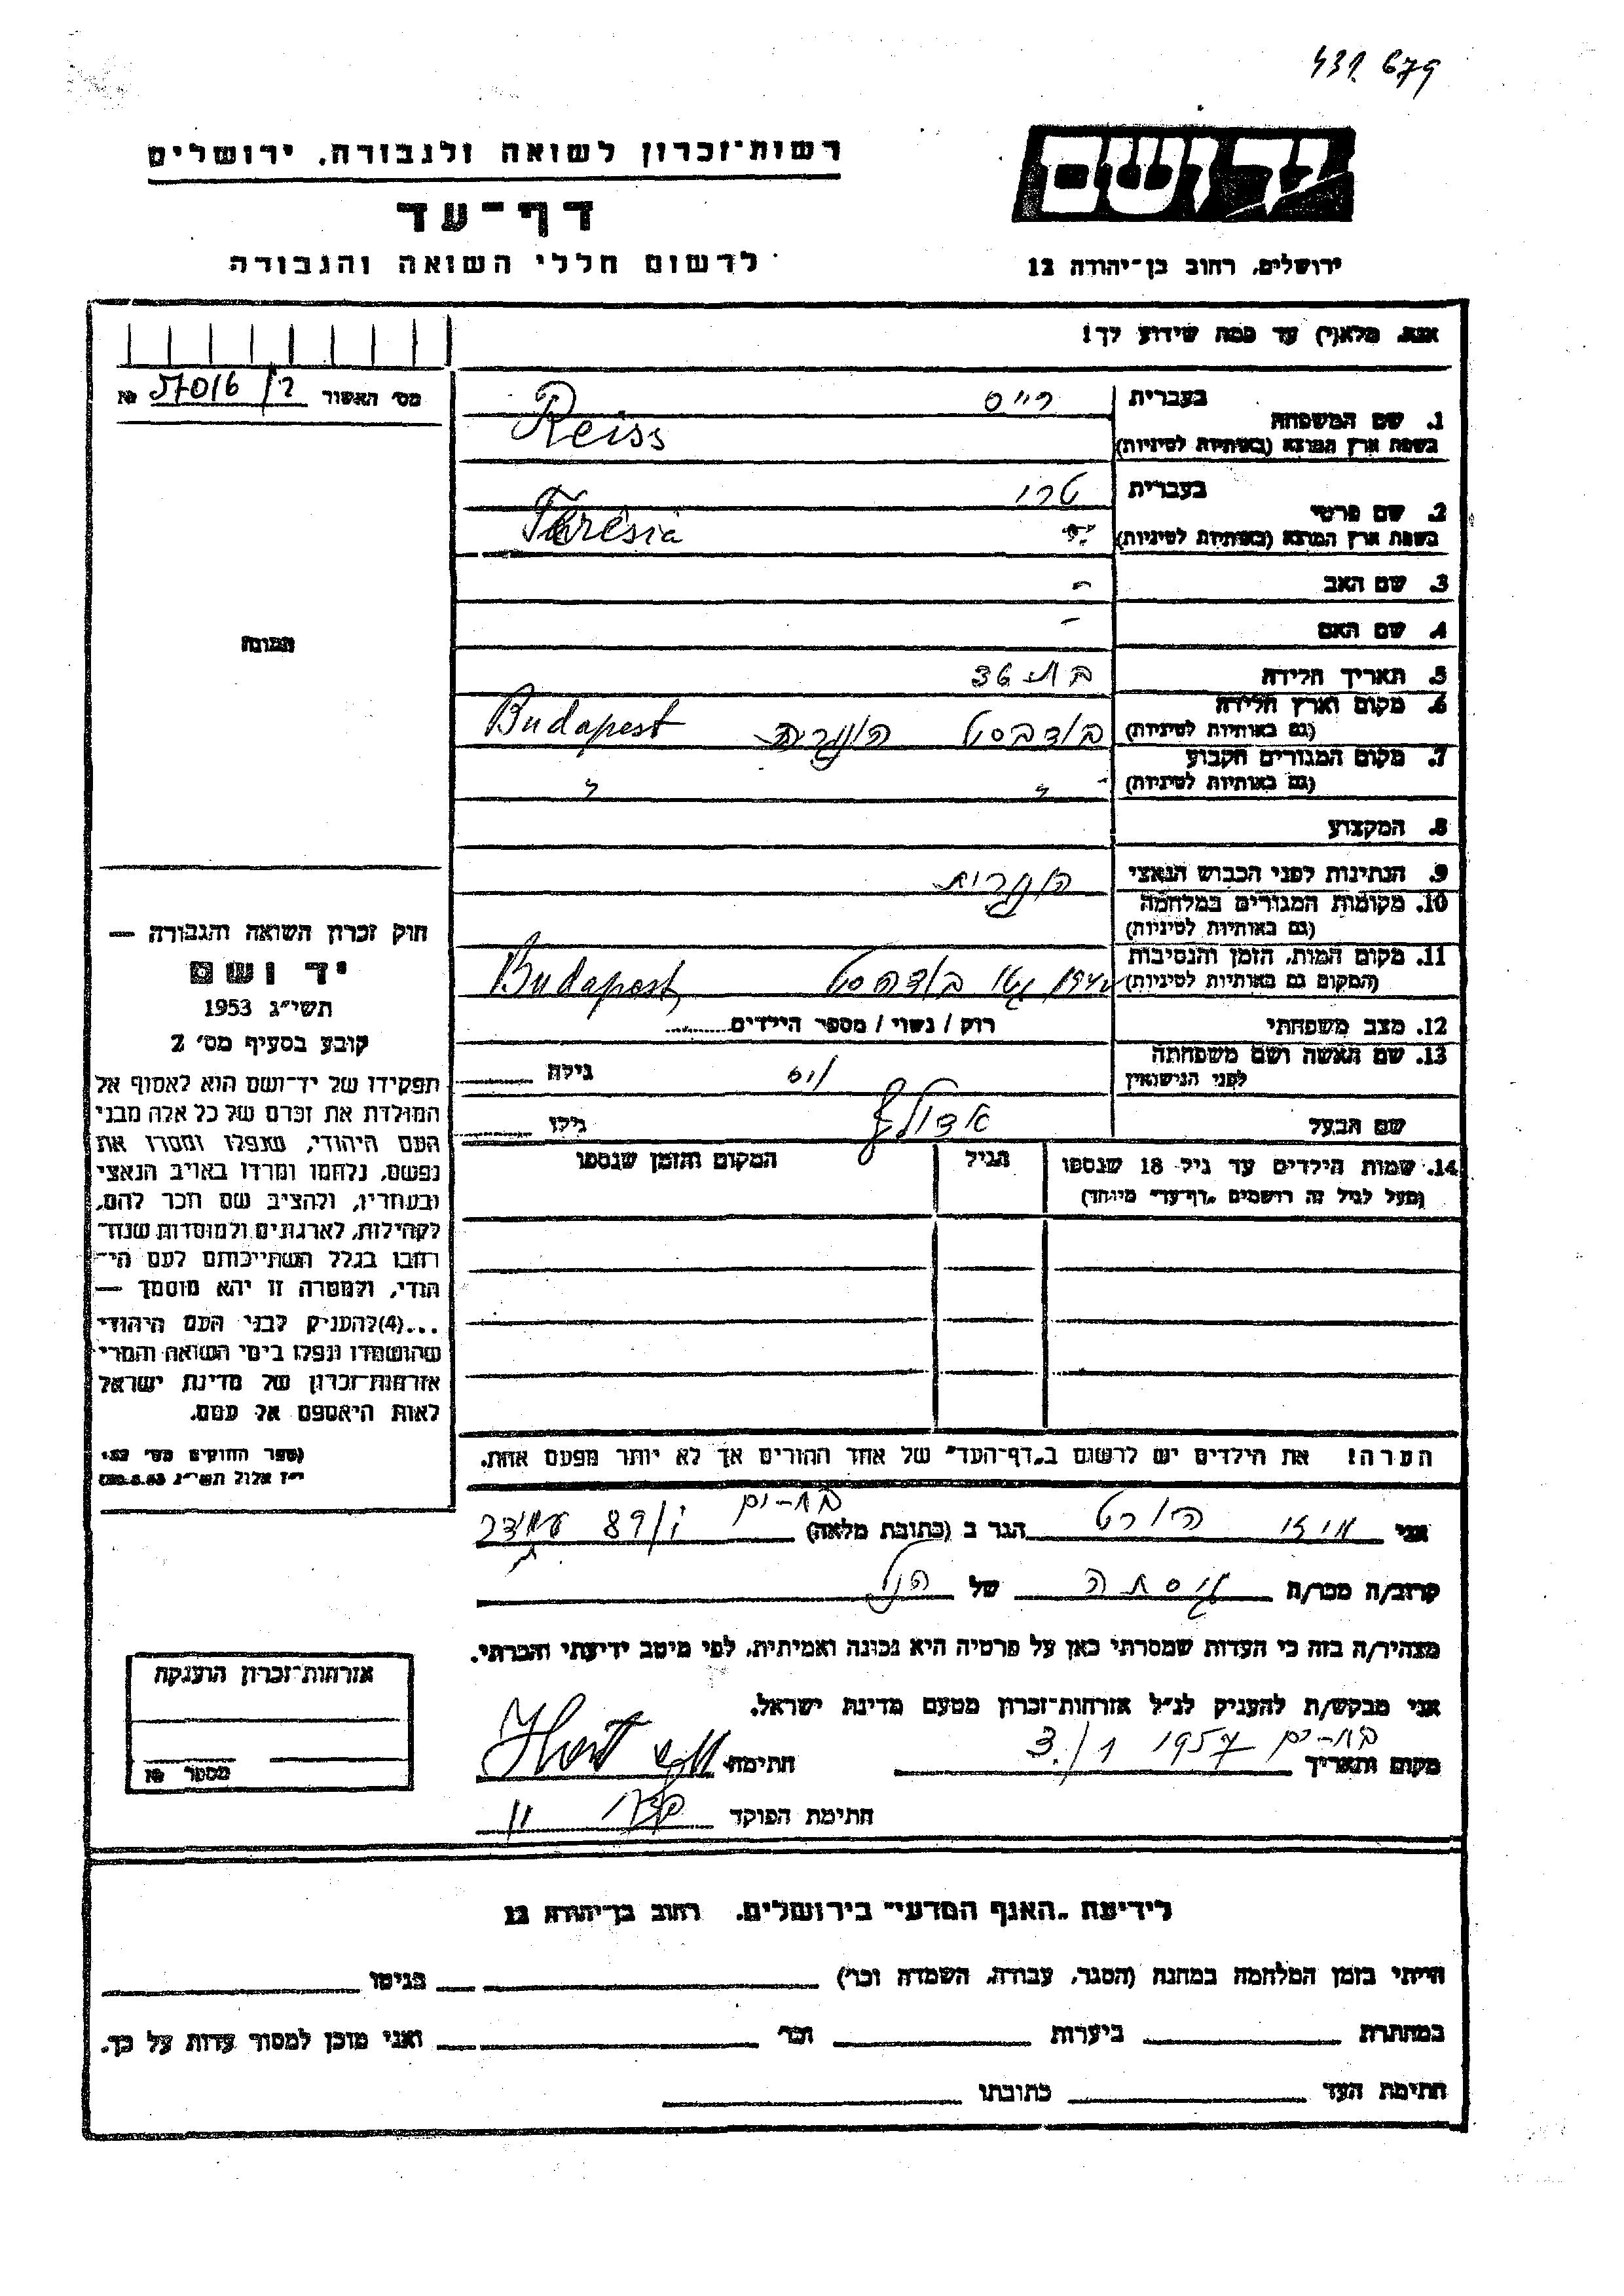 431. 679
יד ושם
רשות־זכרון לשואה ולגבורה, ירושלים
דף־עד
לרשום חללי השואה והגבורה
ירושלים, רחוב בן־יהודה 12
אנא, מלא(י) עד כמה שידוע לך!
מס׳ האשור ר/ 57016 №
1. שם המשפחה
בעברית רייס
בשפת ארץ המוצא (באותיות לטיניות) Reiss
2. שם פרטי
בעברית טרי
בשפת ארץ המוצא (באותיות לטיניות) Therésia
3. שם האב -
4. שם האם -
5. תאריך הלידה בת 36
6. מקום וארץ הלידה
(גם באותיות לטיניות) בודפסט הונגריה Budapest
7. מקום המגורים הקבוע
(גם באותיות לטיניות) " "
8. המקצוע
9. הנתינות לפני הכבוש הנאצי הונגרית
10. מקומות המגורים במלחמה
(גם באותיות לטיניות)
11. מקום המות, הזמן והנסיבות
(המקום גם באותיות לטיניות) גטו בודפסט Budapest
12. מצב משפחתי רוק / נשוי / מספר הילדים
13. שם האשה ושם משפחתה
לפני הנישואין גילה
שם הבעל אדולף גילו
14. שמות הילדים עד גיל 18 שנספו הגיל המקום והזמן שנספו
(מעל לגיל זה רושמים „דף־עד" מיוחד)
הערה! את הילדים יש לרשום ב„דף־העד" של אחד ההורים אך לא יותר מפעם אחת.
תמונה
חוק זכרון השואה והגבורה —
יד ושם
תשי״ג 1953
קובע בסעיף מס׳ 2
תפקידו של יד־ושם הוא לאסוף אל
המולדת את זכרם של כל אלה מבני
העם היהודי, שנפלו ומסרו את
נפשם, נלחמו ומרדו באויב הנאצי
ובעוזריו, ולהציב שם וזכר להם,
לקהילות, לארגונים ולמוסדות שנח־
רבו בגלל השתייכותם לעם הי־
הודי, ולמטרה זו יהא מוסמך —
...(4)להעניק לבני העם היהודי
שהושמדו ונפלו בימי השואה והמרי
אזרחות־זכרון של מדינת ישראל
לאות היאספם אל עמם.
(ספר החוקים מס׳ 132
י״ז אלול תשי״ג 28.8.53)
אני הורט הגר ב (כתובת מלאה) בת-ים 89
קרוב/ה מכר/ה גיסתה של הנ"ל
מצהיר/ה בזה כי העדות שמסרתי כאן על פרטיה היא נכונה ואמיתית, לפי מיטב ידיעתי והכרתי.
אני מבקש/ת להעניק לנ״ל אזרחות־זכרון מטעם מדינת ישראל.
מקום ותאריך בת-ים 1957 חתימה
חתימת הפוקד
אזרחות־זכרון הוענקה
מספר №
לידיעת „האגף המדעי" בירושלים, רחוב בן־יהודה 12
הייתי בזמן המלחמה במחנה (הסגר, עבודה, השמדה וכו׳) בגיטו
במחתרת ביערות וכו׳ ואני מוכן למסור עדות על כך.
חתימת העד כתובתו